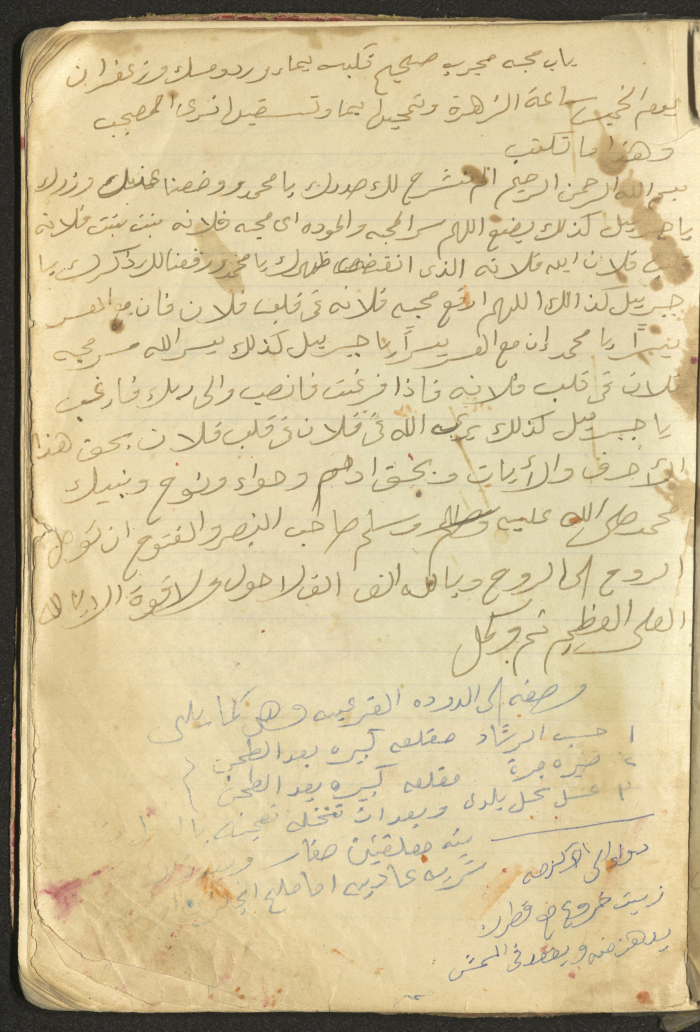 باب محبه مجرب صحيح تكتبه بماء ورد ومسك وزعفران
يوم الخميس ساعة الزهرة وتمحيها بماء وتسقيها ترى العجب
وهذا ما تكتب
بسم الله الرحمن الرحيم الم نشرح لك صدرك يا محمد ووضعنا عنك وزرك
يا جبريل كذلك يضع اللهم سر المحبه والموده اى محبه فلانه بنت بنت فلانه
فلان ابن فلانه الذى انقض ظهرك يا محمد ورفعنا لك ذكرك يا
جبريل كذالك اللهم ارفع محبه فلانه فى قلب فلان فان مع العسر
يسراً يا محمد إن مع العسر يسراً يا جبريل كذلك يسر الله محبه
فلان فى قلب فلانه فاذا فرغت فانصب والى ربك فارغب
يا جبريل كذلك الله فى فلان فى قلب فلان بحق هذا
الأحرف والأيات وبحق ادم وحواء ونوح ونبيك
محمد صلى الله عليه وسلم صاحب النصر والفتوح ان توصل
الروح الى الروح وبالف الف لاحول ولا قوة الا بالله
العلى العظيم تم وكمل
وصفه الى الدوده القرعيه وهى كما يلى
١ حب الرشاد معلقه كبيره بعد الطحن
٢ جرة معلقه كبيره بعد الطحن
٣ عسل نحل بلدى وبعد ان تنخله تعجنه
معلقتين صغار
شربه عاديه اما ملح
دواء الى الأكزمه
زيت خروع قطران
يدهن منه ويقعد فى الشمس